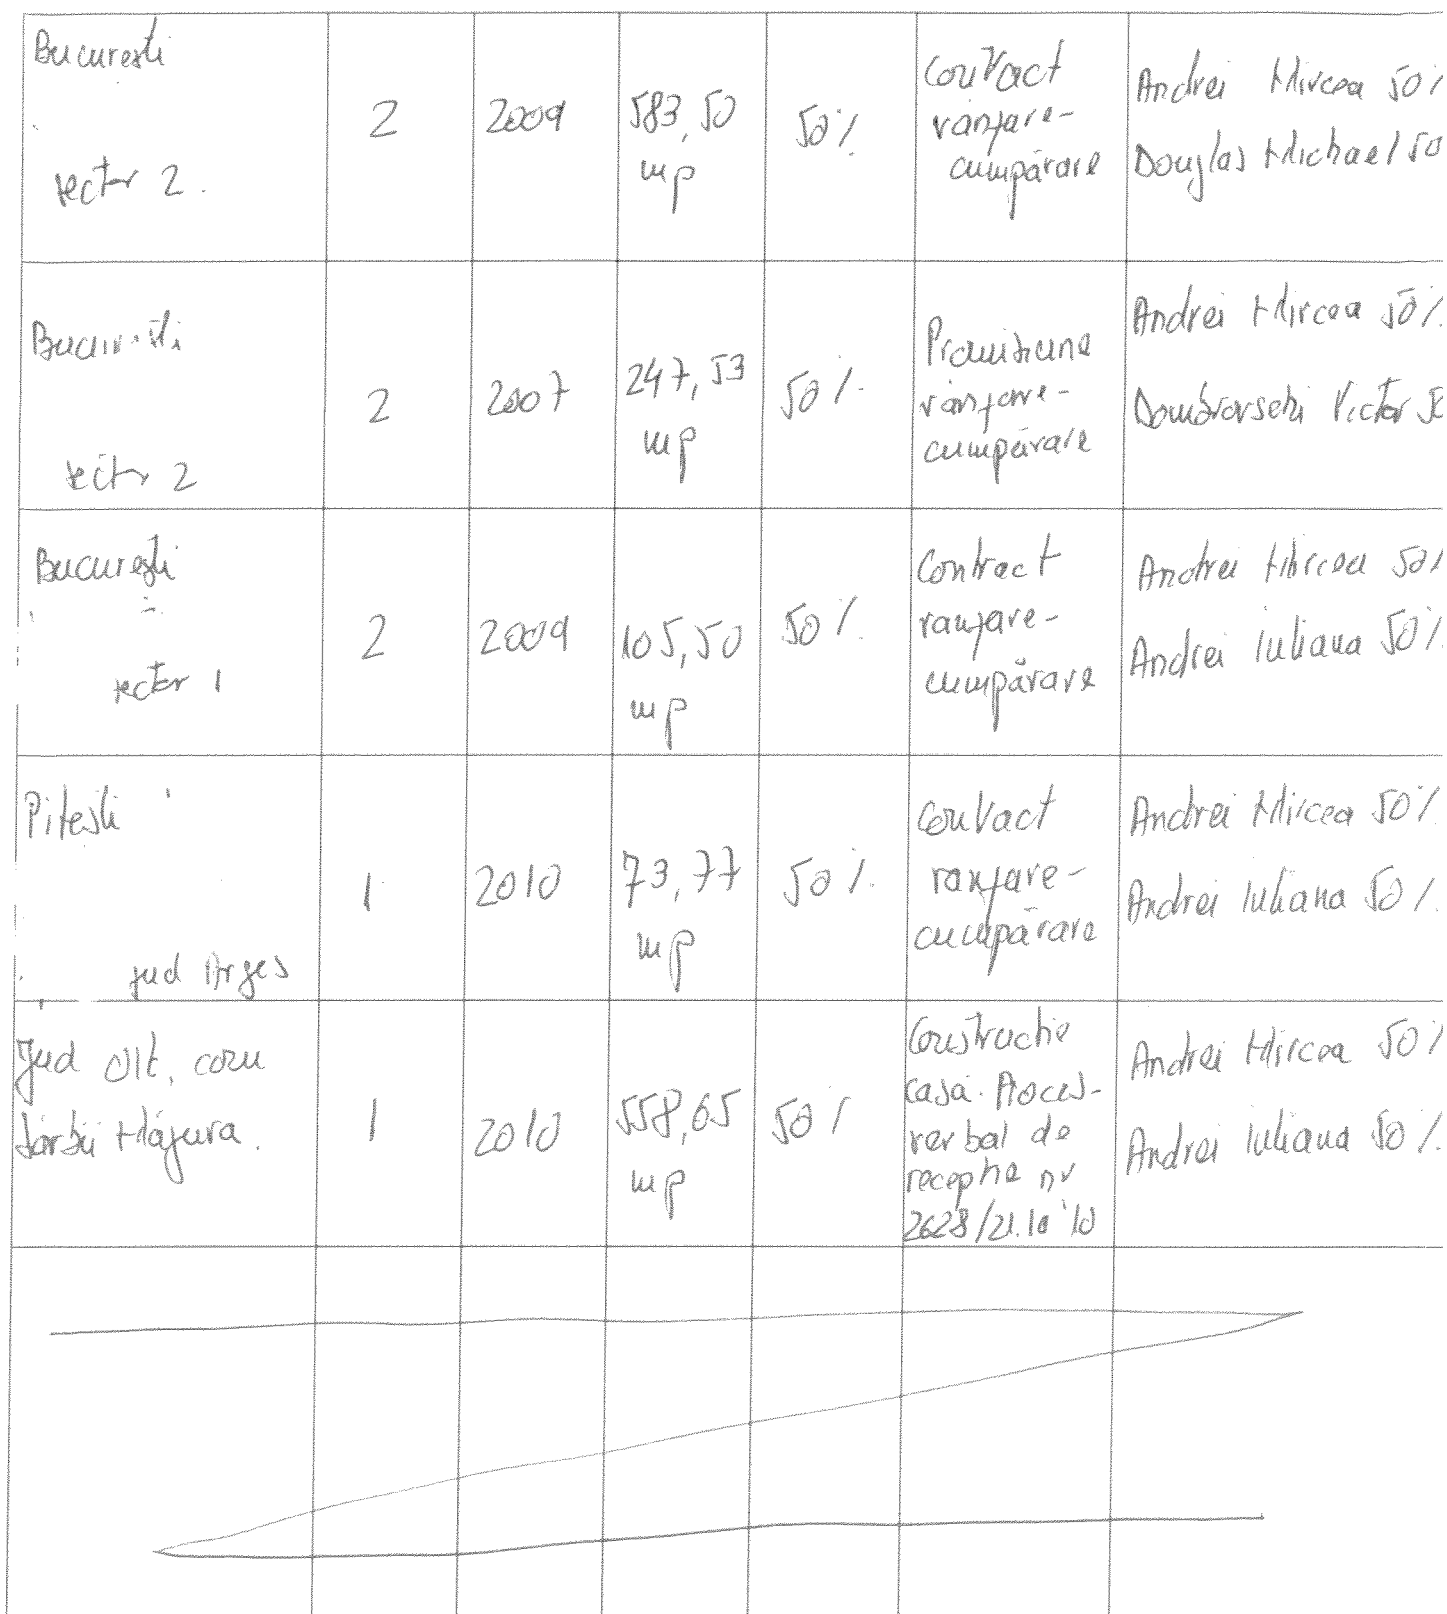 București
sector 2.
2
2009
583,50
mp
50%
Contract
vânzare-
cumpărare
Andrei Mircea 50%
Douglas Michael 50
București
sector 2
2
2007
247,53
mp
50%
Promisiune
vânzare-
cumpărare
Andrei Mircea 50%
Victor 50
București
sector 1
2
2009
105,50
mp
50%
Contract
vanzare-
cumpărare
Andrei Mircea 50%
Andrei Iuliana 50%
Pitești
jud Argeș
1
2010
73,77
mp
50%
Contract
vanzare-
cumpărare
Andrei Mircea 50%
Andrei Iuliana 50%
Jud Olt, com
Sârbii Măgura.
1
2010
558,65
mp
50%
Constructie
casă. Proces-
verbal de
receptie nr
2628/21.10'10
Andrei Mircea 50%
Andrei Iuliana 50%